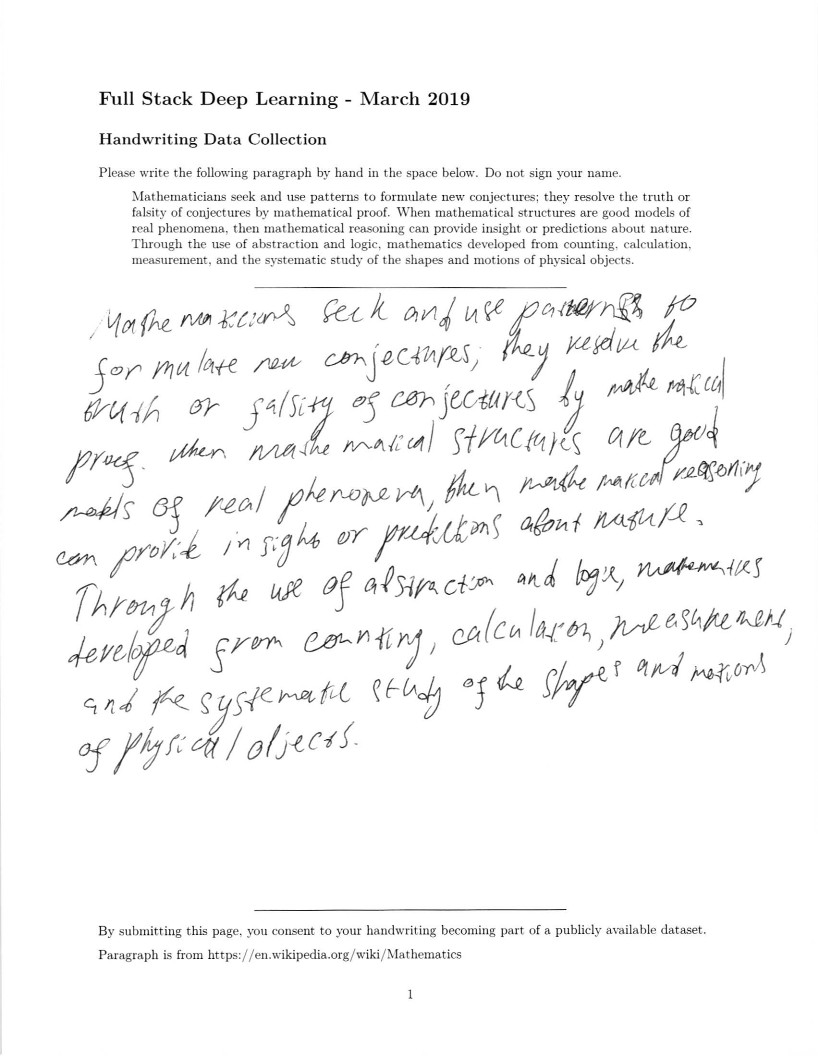 Full Stack Deep Learning - March 2019
Handwriting Data Collection
Please write the following paragraph by hand in the space below. Do not sign your name.
Mathematicians seek and use patterns to formulate new conjectures; they resolve the truth or
falsity of conjectures by mathematical proof. When mathematical structures are good models of
real phenomena, then mathematical reasoning can provide insight or predictions about nature.
Through the use of abstraction and logic, mathematics developed from counting, calculation,
measurement, and the systematic study of the shapes and motions of physical objects.
Mathematicians seek and use patterns to
formulate new conjectures; they resolve the
truth or falsity of conjectures by mathematical
proof. When mathematical structures are good
models of real phenomena, then mathematical reasoning
can provide insight or predictions about nature.
Through the use of abstraction and logic, mathematics
developed from counting, calculation, measurement,
and the systematic study of the shapes and motions
of physical objects.
By submitting this page, you consent to your handwriting becoming part of a publicly available dataset.
Paragraph is from https://en.wikipedia.org/wiki/Mathematics
1